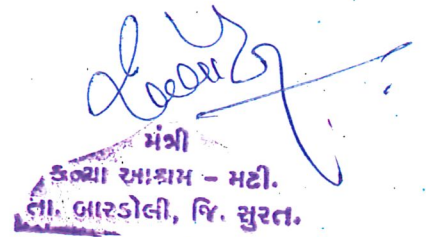 મંત્રી
કન્યા આશ્રમ – મઢી.
તા. બારડોલી, જિ. સુરત.